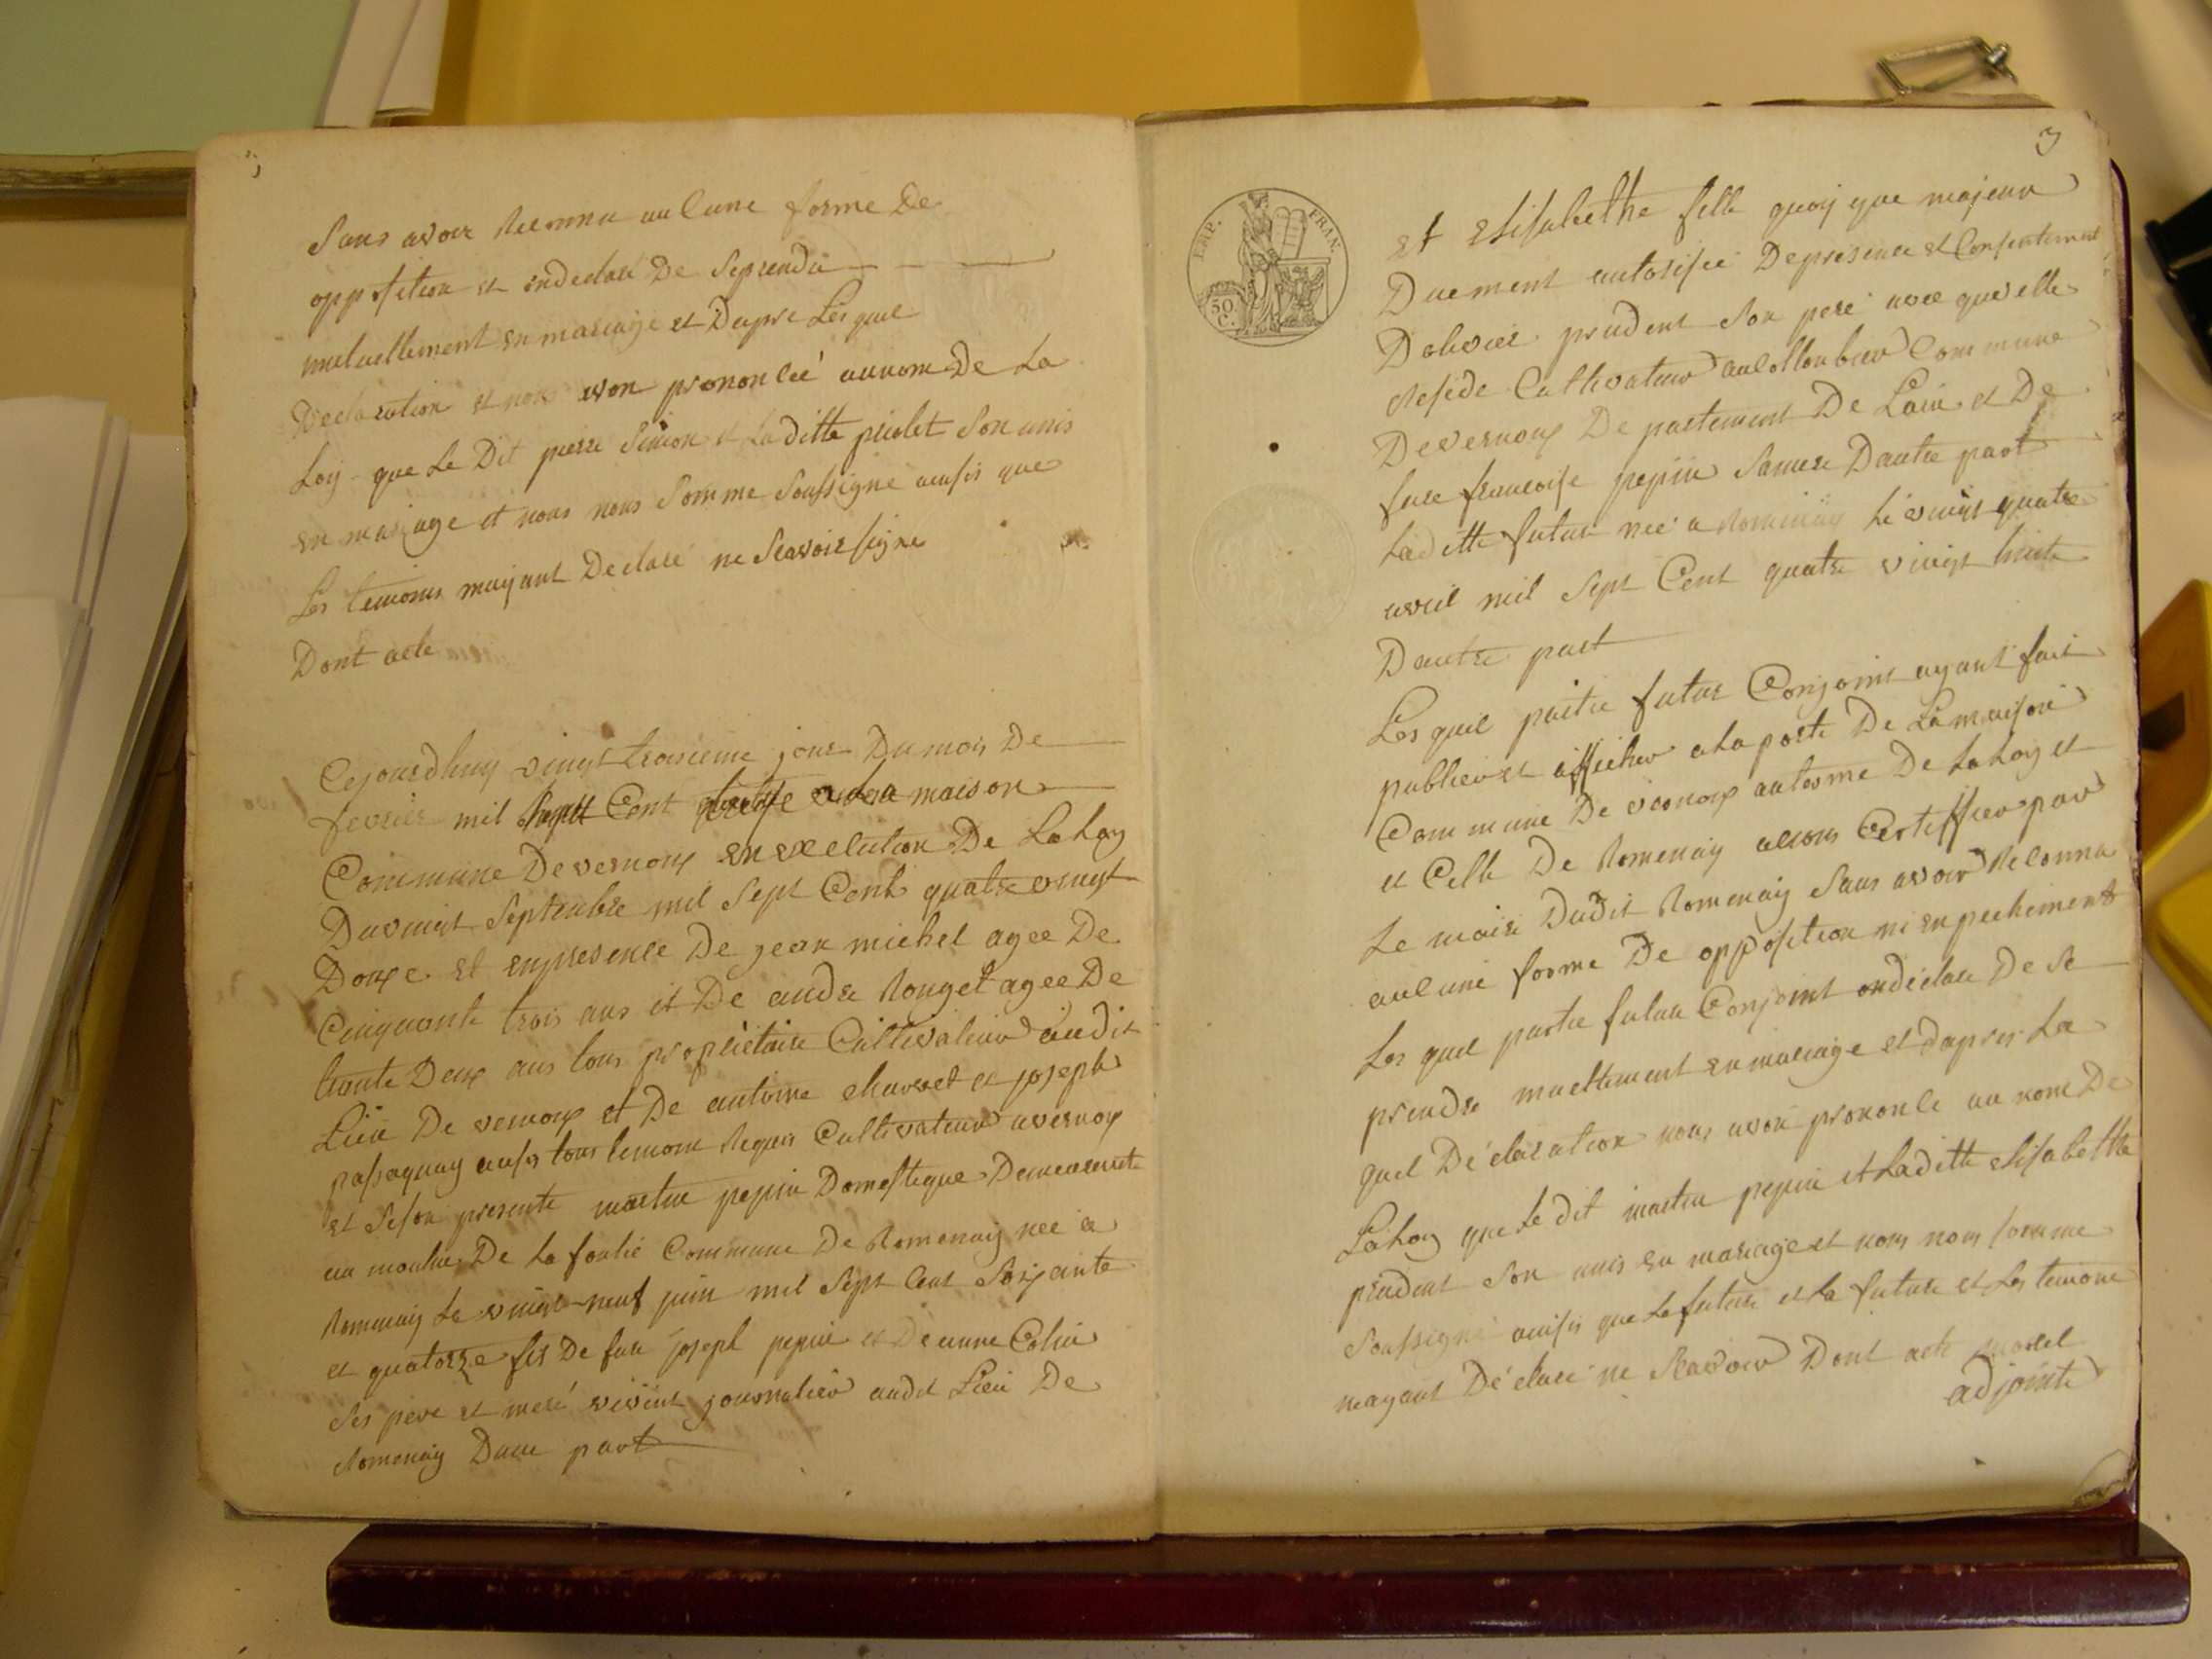 Sans avoir Reconnu auCune forme De
opposition et ondeclaré De Seprendre
mutuellement en mariage et Dapre Les quel
Declaration et nous avon prononCée aunom De La
Loy que Le Dit pierre Simion et La ditte piolet Son unis
en mariage et nous nous Somme Soussigne ausis que
Les temoins mayant Declaré ne Scavoir signe
Dont acte
Cejourdhuy vingt troisieme jour Du mois De
fevrier mil Cent a La maison
Commune De vernoux en exeCution De La Loy
Du vingt Septenbre mil Sept Cent quatre vingt
Douxe et enpresence De jean michel agee De
Cinquante trois ans et De andre Rouget agee De
trante Deux ans tous propriétaire Cultivateur audit
Lieu De vernoux et De antoine chavvet et joseph
passaquay ausis tous temoins Requis Cultivateur avernoux
et Seson presente martin pepin Domestique Demeurante
au moulin De La foulie Commune De Romenay née a
Romenay Le vingt-neuf juin mil Sept Cent Soixante
et quatorze fis De feu joseph pepin et De anne Colin
Ses pere et mere vivient journalier audit Lieu De
Romenay Dune part
3
EMP. FRAN.
50 C.
et Elisabethe fille quoy que majeur
Duement autorisée De presence et Consentement
Dolivier prudent Son pere avec quei elle
Reside Cultivateur au Collonbier Commune
De vernoux De partement De Lain et De
fure francoise pepin Samere Dautre part
Laditte future née a Romenay Le vingt quatre
avril mil Sept Cent quatre vingt huite
Dautre part
Les quel partie futur Conjoint ayant fait
publier et afficher a La porte De La maison
Commune De vernoux auterme De La Loy et
et Celle De Romenay Certiffier par
Le maire Dudit Romenay Sans avoir ReConnu
auCune forme De opposition ni enpechement
Les quel partie futur Conjoint ondéclare De Se
prendre muettement en mariage et dapres La
quel Déclaration nous avon prononCe au nom De
La Loy que Le dit martin pepin et Laditte elisabethe
prudent Son unis en mariage et nous nous Somme
Soussigné ausis que Le futur et La future et Les temoins
mayant Déclaré ne Scavoir Dont acte morel
adjointe